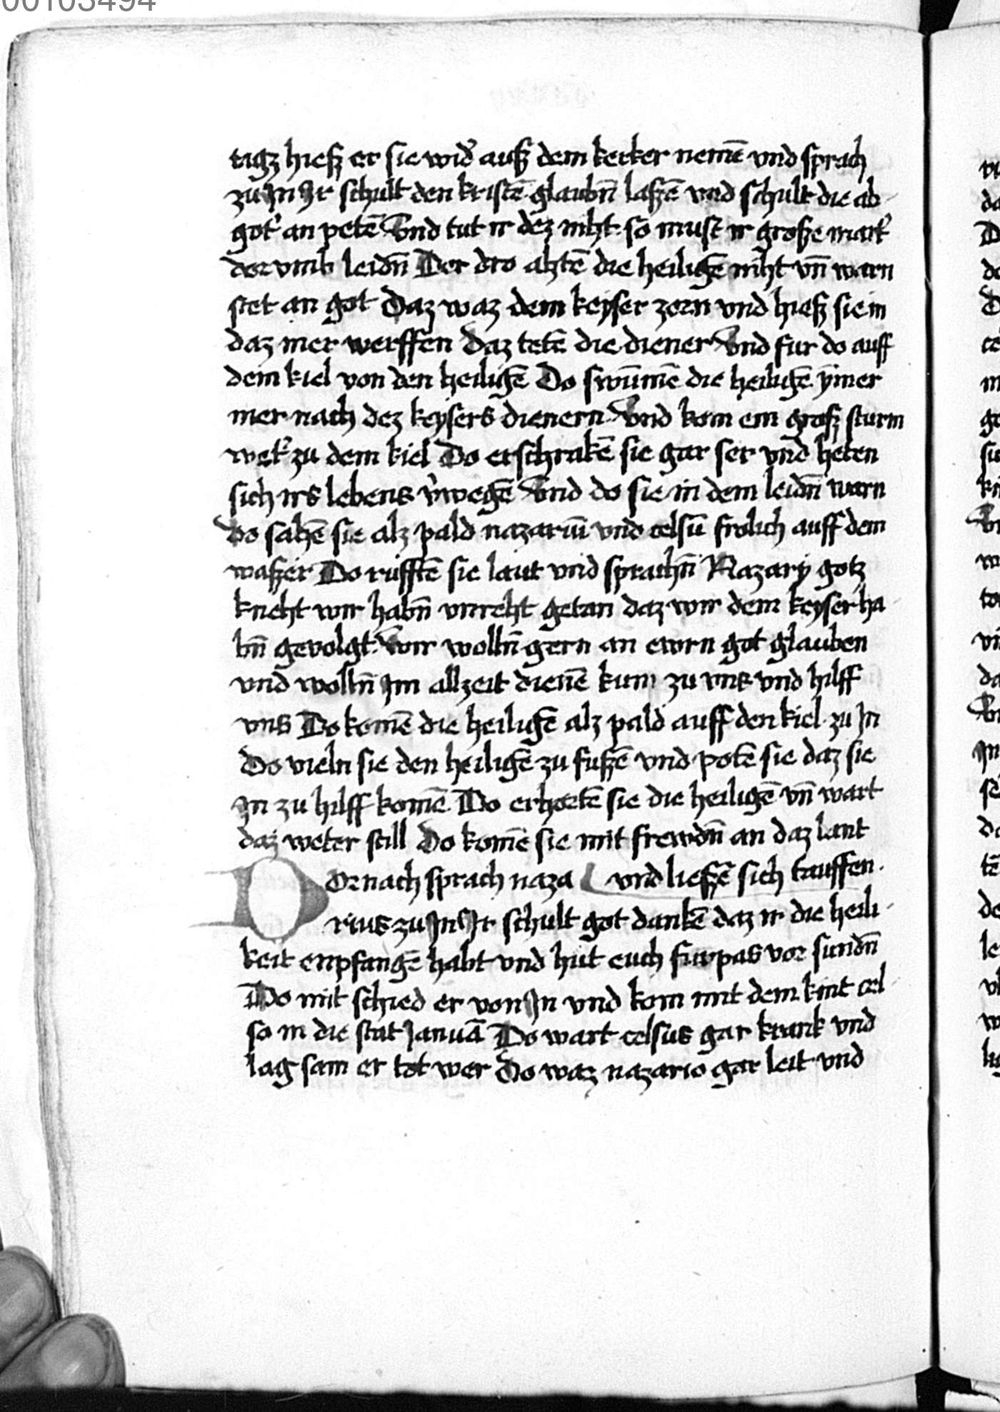 00103494
tagz hiesz er sie wid̾ ausz dem kerker nemē vnd sprach
zu Jn Jr schult den kristē glaubn̄ laszē vnd schult die ab
got̾ an petē Vnd tut ir dez niht so must ir grosze mart̾
dor vmb leidn̄ Der dro ahtē die heiligē niht vn̄ warn
stet an got Daz waz dem keyser zorn vnd hiesz sie in
daz mer werffen Daz tetē die diener Vnd fur do auff
dem kiel von den heiligē Do swūmē die heiligē ymer
mer nach dez keysers dienern Vnd kom ein grosz sturm
wet̾ zu dem kiel Do erschrakē sie gar ser vnd heten
sich irs lebens v̾wegē Vnd do sie in dem leidn̄ warn
do sahē sie alz pald nazariū vnd celsū frolich auff dem
waszer Do rufftē sie laut vnd sprachn̄ Nazary gotz
kneht wir habn̄ vnreht getan daz wir dem keyser ha
bn̄ gevolgt Wir wolln̄ gern an ewrn got glauben
vnd wolln̄ Jm allzeit dienē kum zu vns vnd hilff
vns Do komē die heiligē alz pald auff den kiel zu Jn
Do vieln sie den heiligē zu fuszē vnd potē sie daz sie
Jn zu hilff komē Do erhortē sie die heiligē vn̄ wart
daz weter still Do komē sie mit frewdn̄ an daz lant
Dornach sprach naza vnd lieszē sich tauffen
rius zu Jn Jr schult got dankē daz ir die heili
keit enpfangē habt vnd hut euch furpas vor sundn̄
Do mit schied er von Jn vnd kom mit dem kint cel
so in die stat Januā Do wart celsus gar krank vnd
lag sam er tot wer Do waz nazario gar leit vnd